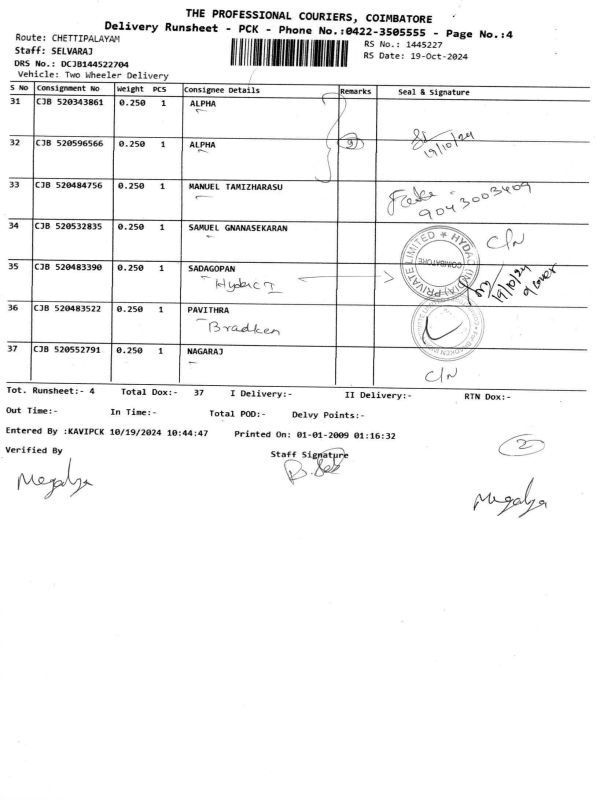 THE PROFESSIONAL COURIERS, COIMBATORE
Delivery Runsheet - PCK - Phone No.:0422-3505555 - Page No.:4
Route: CHETTIPALAYAM
RS No.: 1445227
Staff: SELVARAJ
RS Date: 19-Oct-2024
DRS No.: DCJB144522704
Vehicle: Two Wheeler Delivery
S No Consignment No Weight PCS Consignee Details Remarks Seal & Signature
31 CJB 520343861 0.250 1 ALPHA
32 CJB 520596566 0.250 1 ALPHA 9
19/10/24
33 CJB 520484756 0.250 1 MANUEL TAMIZHARASU
9043003409
34 CJB 520532835 0.250 1 SAMUEL GNANASEKARAN
C/N
HYDAC (INDIA) PRIVATE LIMITED
COIMBATORE
35 CJB 520483390 0.250 1 SADAGOPAN
Hydac I
19/10/24
9 cover
36 CJB 520483522 0.250 1 PAVITHRA
Bradken
37 CJB 520552791 0.250 1 NAGARAJ
C/N
Tot. Runsheet:- 4 Total Dox:- 37 I Delivery:- II Delivery:- RTN Dox:-
Out Time:- In Time:- Total POD:- Delvy Points:-
Entered By :KAVIPCK 10/19/2024 10:44:47 Printed On: 01-01-2009 01:16:32
2
Verified By
Staff Signature